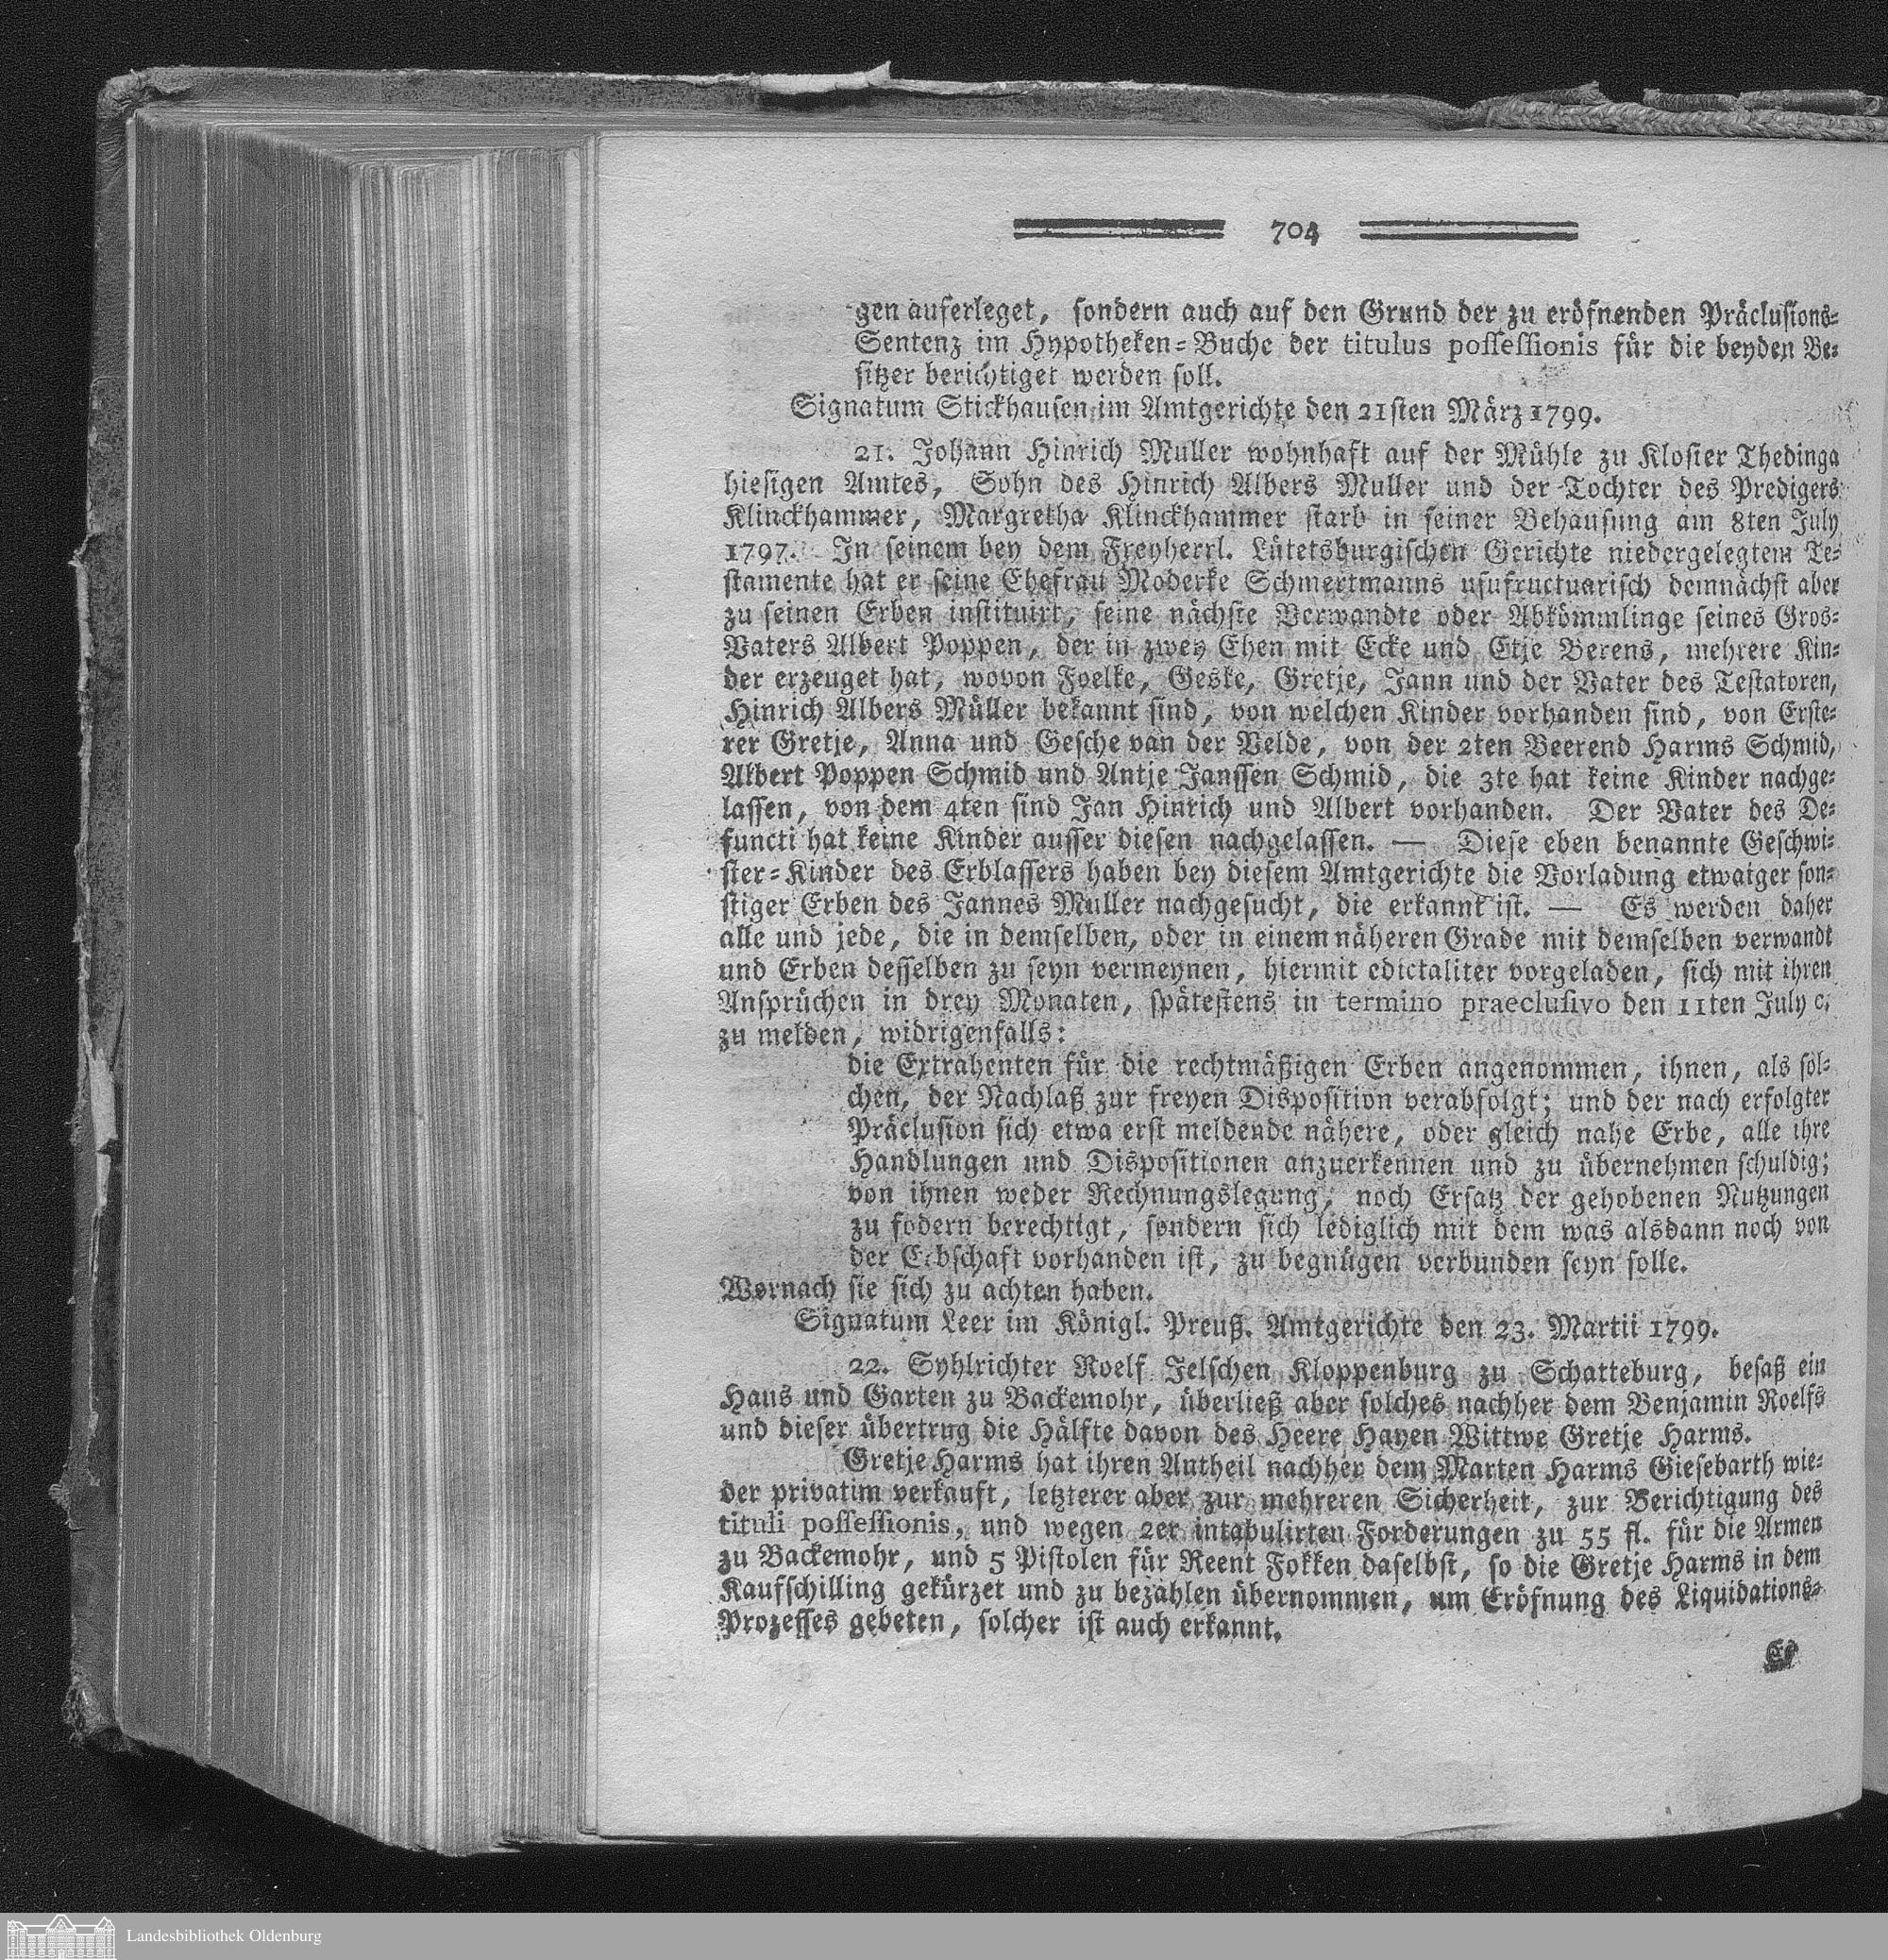 704
gen auferleget, sondern auch auf den Grund der zu eröfnenden Präclusions-
Sentenz im Hypotheken-Buche der titulus possessionis für die beyden Be-
sitzer berichtiget werden soll.
Signatum Stickhausen im Amtgerichte den 21sten März 1799.
21. Johann Hinrich Muller wohnhaft auf der Mühle zu Kloster Thedinga
hiesigen Amtes, Sohn des Hinrich Albers Muller und der Tochter des Predigers
Klinckhammer, Margretha Klinckhammer starb in seiner Behausung am 8ten July
1797. In seinem bey dem Freyherrl. Lütetsburgischen Gerichte niedergelegtem Te-
stamente hat er seine Ehefrau Moderke Schmertmanns usufructuarisch demnächst aber
zu seinen Erben instituirt, seine nächste Verwandte oder Abkömmlinge seines Gros-
Vaters Albert Poppen, der in zwey Ehen mit Ecke und Etje Berens, mehrere Kin-
der erzeuget hat, wovon Foelke, Geske, Gretje, Jann und der Vater des Testatoren,
Hinrich Albers Müller bekannt sind, von welchen Kinder vorhanden sind, von Erste-
rer Gretje, Anna und Gesche van der Velde, von der 2ten Beerend Harms Schmid,
Albert Poppen Schmid und Antje Janssen Schmid, die 3te hat keine Kinder nachge-
lassen, von dem 4ten sind Jan Hinrich und Albert vorhanden. Der Vater des De-
functi hat keine Kinder ausser diesen nachgelassen. — Diese eben benannte Geschwi-
ster-Kinder des Erblassers haben bey diesem Amtgerichte die Vorladung etwaiger son-
stiger Erben des Jannes Muller nachgesucht, die erkannt ist. — Es werden daher
alle und jede, die in demselben, oder in einem näheren Grade mit demselben verwandt
und Erben desselben zu seyn vermeynen, hiermit edictaliter vorgeladen, sich mit ihren
Ansprüchen in drey Monaten, spätestens in termino praeclusivo den 11ten July c.
zu melden, widrigenfalls:
die Extrahenten für die rechtmäßigen Erben angenommen, ihnen, als sol-
chen, der Nachlaß zur freyen Disposition verabfolgt; und der nach erfolgter
Präclusion sich etwa erst meldende nähere, oder gleich nahe Erbe, alle ihre
Handlungen und Dispositionen anzuerkennen und zu übernehmen schuldig;
von ihnen weder Rechnungslegung, noch Ersatz der gehobenen Nutzungen
zu fodern berechtigt, sondern sich lediglich mit dem was alsdann noch von
der Erbschaft vorhanden ist, zu begnügen verbunden seyn solle.
Wornach sie sich zu achten haben.
Signatum Leer im Königl. Preuß. Amtgerichte den 23. Martii 1799.
22. Syhlrichter Roelf Jelschen Kloppenburg zu Schatteburg, besaß ein
Haus und Garten zu Backemohr, überließ aber solches nachher dem Benjamin Roelfs
und dieser übertrug die Hälfte davon des Heere Hayen Wittwe Gretje Harms.
Gretje Harms hat ihren Antheil nachher dem Marten Harms Giesebarth wie-
der privatim verkauft, letzterer aber zur mehreren Sicherheit, zur Berichtigung des
tituli possessionis, und wegen 2er intabulirten Forderungen zu 55 fl. für die Armen
zu Backemohr, und 5 Pistolen für Reent Fokken daselbst, so die Gretje Harms in dem
Kaufschilling gekürzet und zu bezahlen übernommen, um Eröfnung des Liquidations-
Prozesses gebeten, solcher ist auch erkannt.
Es
Landesbibliothek Oldenburg